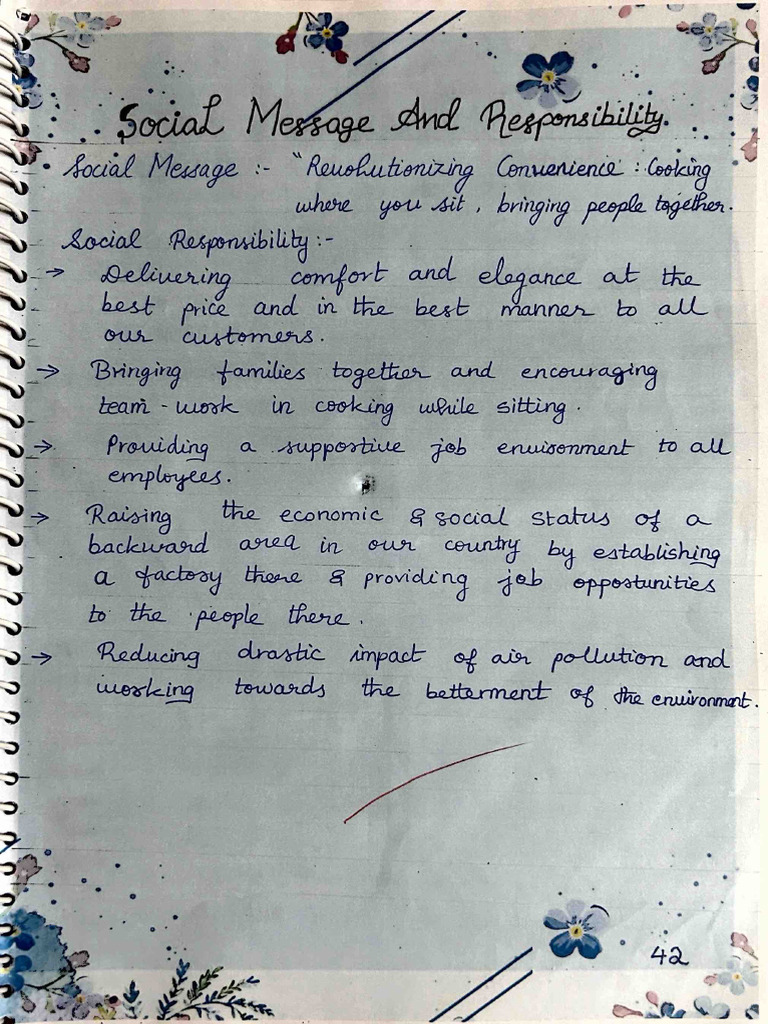 Social Message And Responsibility.
Social Message :- "Revolutionizing Convenience : Cooking
where you sit, bringing people together.
Social Responsibility:-
→ Delivering comfort and elegance at the
best price and in the best manner to all
our customers.
→ Bringing families together and encouraging
team-work in cooking while sitting.
→ Providing a supportive job environment to all
employees.
→ Raising the economic & social status of a
backward area in our country by establishing
a factory there & providing job opportunities
to the people there.
→ Reducing drastic impact of air pollution and
working towards the betterment of the environment.
42